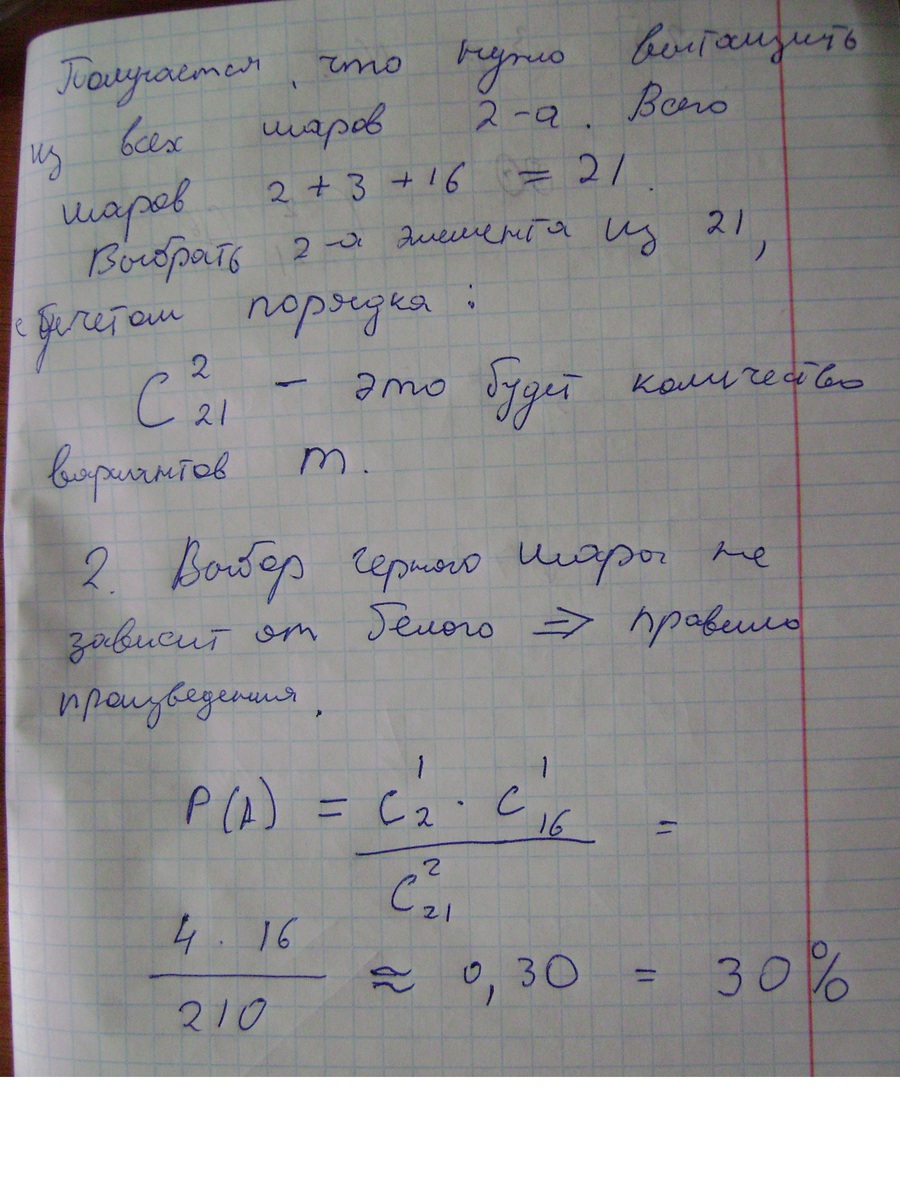 Получается, что нужно вытащить
из всех шаров 2-а. Всего
шаров 2 + 3 + 16 = 21.
Выбрать 2-а элемента из 21,
с учетом порядка :
C²₂₁ – это будет количество
вариантов m.
2. Выбор черного шары не
зависит от белого ⇒ правило
произведения.
P(A) = C¹₂ · C¹₁₆ =
C²₂₁
4 · 16
210 ≈ 0,30 = 30%